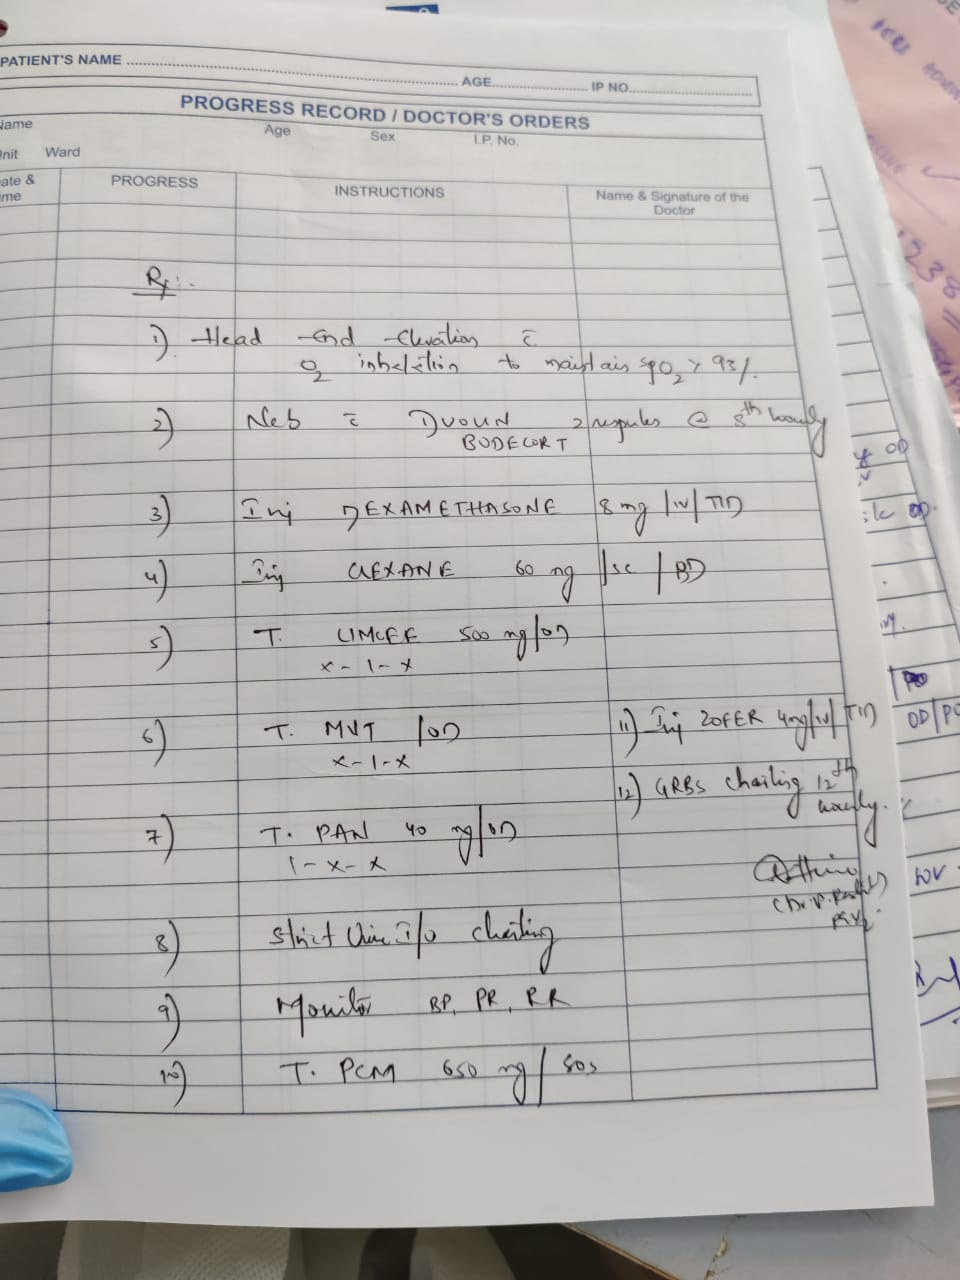 PATIENT'S NAME ........ AGE........ IP NO........
PROGRESS RECORD / DOCTOR'S ORDERS
Name Age Sex I.P. No.
Unit Ward
Date & Time PROGRESS INSTRUCTIONS Name & Signature of the Doctor
Rx:-
1) Head End Elevation c̄
O2 inhalation to maintain SpO2 > 93%.
2) Neb c̄ DUOLIN 2 respules @ 8th hourly
BUDECORT
3) Inj DEXAMETHASONE 8 mg /IV/ TID
4) Inj CLEXANE 60 mg /SC / BD
5) T. LIMCEE 500 mg/OD
x-1-x
6) T. MVT /OD
x-1-x
7) T. PAN 40 mg/OD
1-x-x
8) Strict I/O charting
9) Monitor BP, PR, RR
10) T. PCM 650 mg / SOS
11) Inj ZOFER 4mg/IV/ TID
12) GRBS charting 12th
hourly.
OD
OD.
PO
OD/PO
1238